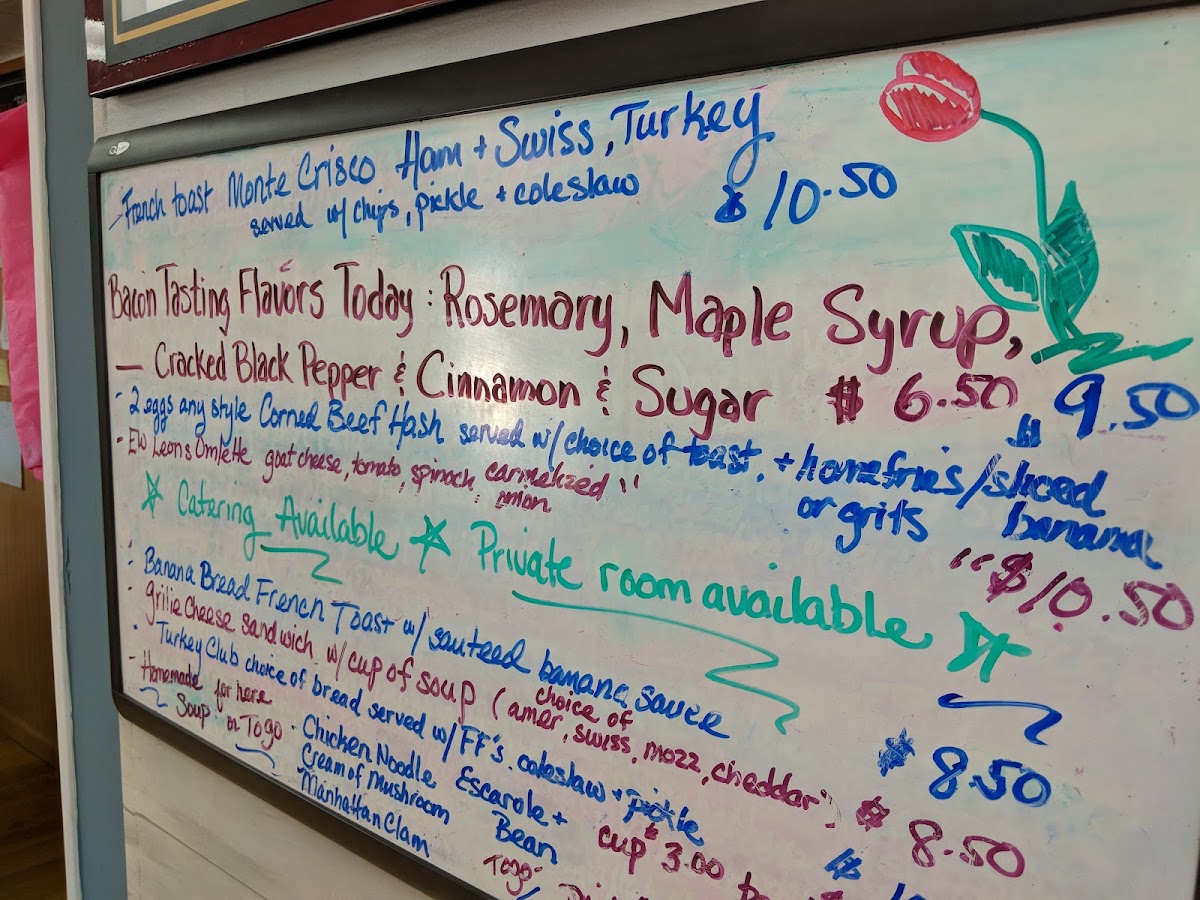 - French toast Monte Crisco Ham + Swiss, Turkey
served w/ chips, pickle + coleslaw $ 10.50
Bacon Tasting Flavors Today : Rosemary, Maple Syrup,
— Cracked Black Pepper & Cinnamon & Sugar $ 6.50
- 2 eggs any style Corned Beef Hash served w/ choice of toast. + homefries/sliced banana or grits $ 9.50
- EW Leons Omlette goat cheese, tomato, spinach, carmelized onion " "$10.50
Catering Available Private room available
- Banana Bread French Toast w/ sauteed banana sauce $ 8.50
- grille cheese sandwich w/ cup of soup (choice of amer, swiss, mozz, cheddar) $ 8.50
- Turkey Club choice of bread served w/ FF's. coleslaw + pickle $
- Homemade Soup for here or Togo - Chicken Noodle Escarole + Bean
Cream of Mushroom
Manhattan Clam
cup $ 3.00
Togo